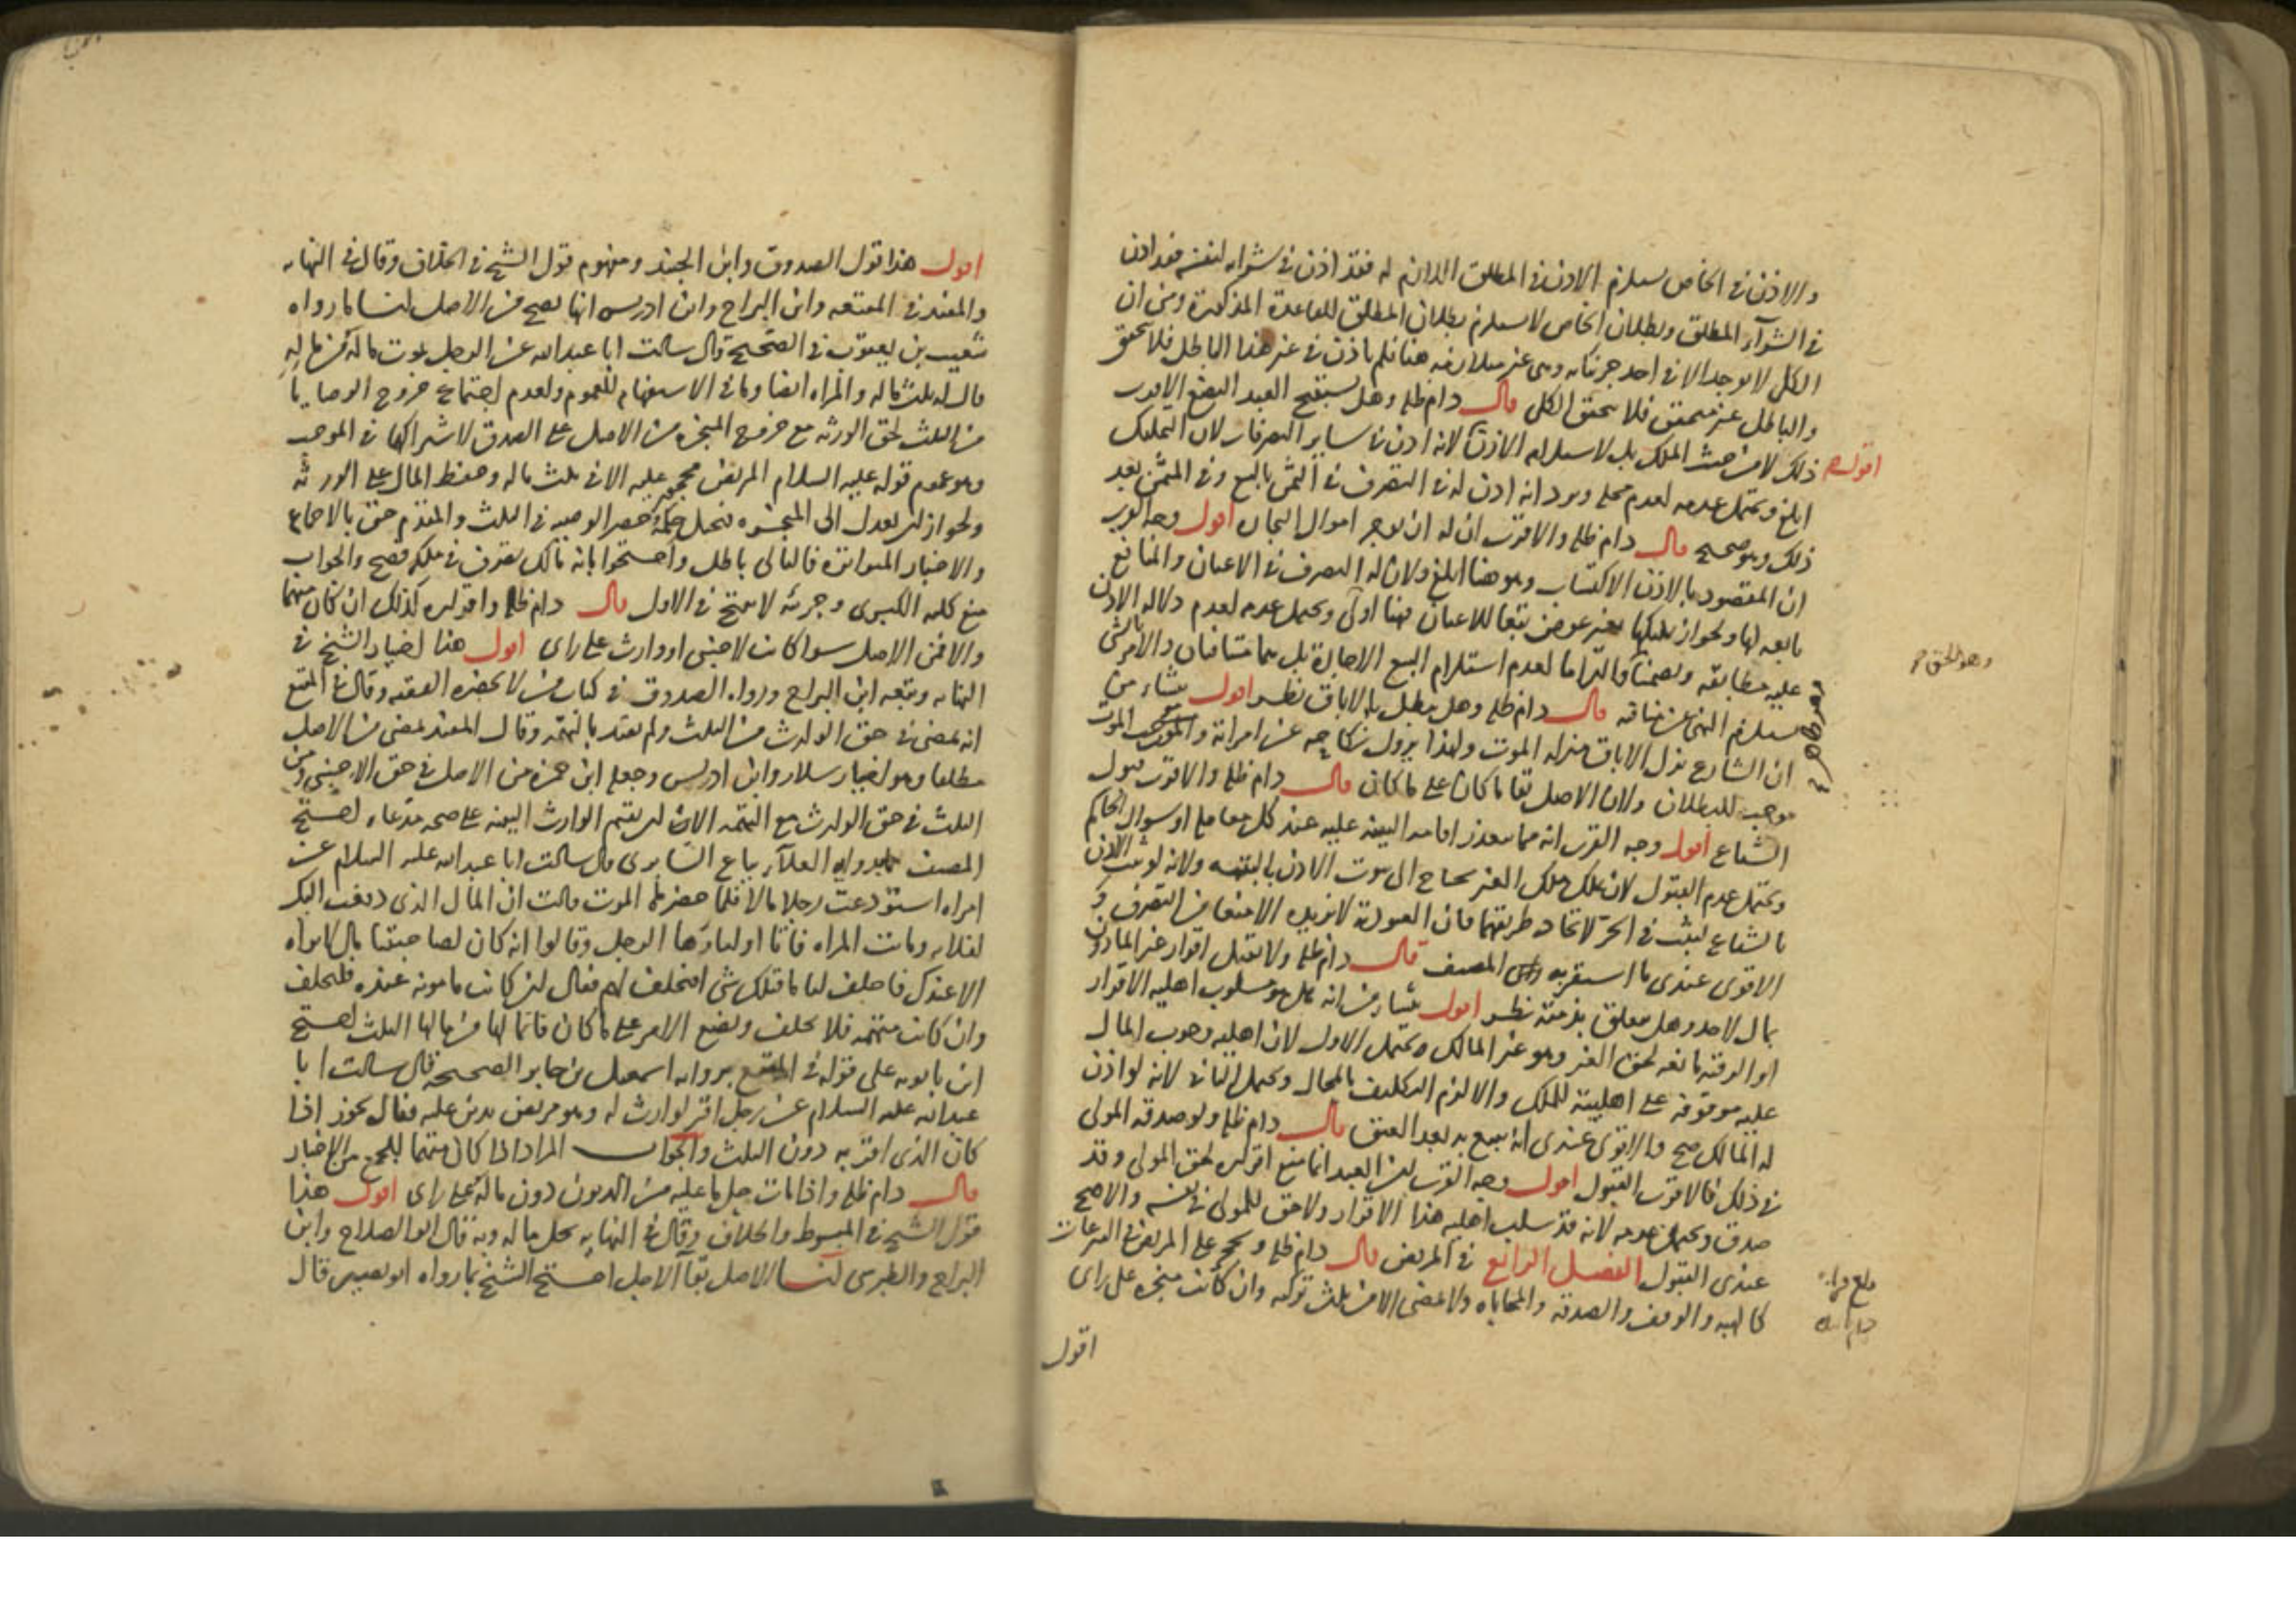 والاذن في الخاص يستلزم الاذن في المطلق اللازم له فقد اذن في شرائه لنفسه فقد اذن
في الشرآء المطلق وبطلان الخاص لا يستلزم بطلان المطلق للقاعدة المذكورة ومن ان
الكل لا يوجد الا في احد جزئياته وهي غير متلازمه هنا فلم ياذن في غير هذا الباطل فلا يتحقق
والباطل غير متحقق فلا يتحقق الكلى قال دام ظله وهل يستبيح العبد البضع الاقرب
ذلك لا من حيث الملك بل لاستلزامه الاذن اقول لانه اذن في ساير التصرفات لان التمليك
ابلغ ويحتمل عدمه لعدم محله ويرد انه اذن له في التصرف في الثمن بالبيع وفي المثمن بعد
ذلك وهو صحيح قال دام ظله والاقرب ان له ان يوجر اموال التجاره اقول وجه القرب
ان المقصود بالاذن الاكتساب وهو هنا ابلغ ولان له التصرف في الاعيان والمنافع
تابعه لها ولجواز تمليكها بغير عوض تبعا للاعيان فهنا اولى ويحتمل عدمه لعدم دلاله الاذن
عليه مطابقه وتضمنا والتزاما لعدم استلزام البيع الاجارة بل هما متنافيان والامر بالشى
يستلزم النهى عن منافيه قال دام ظله وهل يبطل بالاباق نظر اقول ينشاء من
ان الشارع نزل الاباق منزله الموت ولهذا يزول نكاحه عن امراته والموت
موجب للبطلان ولان الاصل بقا ما كان على ما كان قال دام ظله والاقرب قبول
الشياع اقول وجه القرب انه مما يتعذر اقامه البينه عليه عند كل معامله او سوال الحاكم
ويحتمل عدم القبول لانه تملك ملك الغير يحتاج الى ثبوت الاذن بالبينه ولانه لو ثبت الاذن
بالشياع لثبت في الحر لاتحاد طريقهما فان العبودية لا تزيده الا منعا من التصرف و
الاقوى عندى ما استقر به المصنف قال دام ظله ولا يقبل اقرار غير الماذون
بمال لاحد وهل يتعلق بذمته نظر اقول ينشا من انه هل هو مسلوب اهليه الاقرار
او الرقيه مانعه لحق الغير وهو غير المالك ويحتمل الاول لان اهليه وجوب المال
عليه موقوفه على اهليته للملك والا لزم التكليف بالمحال ويحتمل الثانى لانه لو اذن
له المالك صح والاقوى عندى انه يتبع به بعد العتق قال دام ظله ولو صدقه المولى
في ذلك فالاقرب القبول اقول وجه القرب ان العبد انما منع اقراره لحق المولى وقد
صدق ويحتمل عدمه لانه قد سلب اهليه هذا الاقرار ولا حق للمولى في نفسه والاصح
عندى القبول الفصل الرابع في المريض قال دام ظله ويحجر على المريض في التبرعات
كالهبه والوقف والصدقه والمحاباه ولا تمضى الا من ثلث تركته وان كانت منجزه على راى
اقول
وهو الحق
اقول هذا قول الصدوق وابن الجنيد ومفهوم قول الشيخ في الخلاف وقال في النهايه
والمفيد في المقنعه وابن البراج وابن ادريس انها تصح من الاصل لنا ما رواه
شعيب بن يعقوب في الصحيح قال سالت ابا عبدالله عن الرجل يموت ما له من ماله
قال له ثلث ماله والمراه ايضا وما في الاستفهام للعموم ولعدم اجتماع خروج الوصايا
من الثلث لحق الورثه مع خروج المنجزه من الاصل على الصدق لاشتراكهما في الموجب
وهو عموم قوله عليه السلام المريض محجور عليه الا في ثلث ماله وحفظ المال على الورثه
ولجواز ان يعدل الى المنجزه فتختل حكمة حصر الوصيه في الثلث والمقدم حق بالاجماع
والاخبار المتواتره فالتالى باطل واحتجوا بانه مالك تصرف في ملكه فصح والجواب
منع كليه الكبرى وجزئيه لا تنتج في الاول قال دام ظله واقراره كذلك ان كان متهما
والا فمن الاصل سوا كان لاجنبى او وارث على راى اقول هذا اختيار الشيخ في
النهايه وتبعه ابن البراج ورواه الصدوق في كتاب من لا يحضره الفقيه وقال في المقنع
انه يمضى في حق الوارث من الثلث ولم يقيد بالتهمه وقال المفيد يمضى من الاصل
مطلقا وهو اختيار سلار وابن ادريس وجعله ابن حمزه من الاصل في حق الاجنبى ومن
الثلث في حق الوارث مع التهمه الا ان يقيم الوارث البينه على صحه مدعاه احتج
المصنف بما رواه العلآء بياع السابرى قال سالت ابا عبدالله عليه السلام عن
امراه استودعت رجلا مالا فلما حضرها الموت قالت ان المال الذى دفعت اليك
لفلانه وماتت المراه فاتا اولياوها الرجل وقالوا انه كان لصاحبتنا مال لا نراه
الا عندك فاحلف لنا ما قبلك شى افيحلف لهم فقال ان كانت مامونه عنده فليحلف
وان كانت متهمه فلا يحلف ويضع الامر على ما كان فانما لها من مالها الثلث احتج
ابن بابويه على قوله في المقنع بروايه اسمعيل بن جابر الصحيحه قال سالت ابا
عبدالله عليه السلام عن رجل اقر لوارث له وهو مريض بدين عليه فقال يجوز اذا
كان الذى اقر به دون الثلث والجواب المراد اذا كان متهما للجمع بين الاخبار
قال دام ظله واذا مات حل ما عليه من الديون دون ماله على راى اقول هذا
قول الشيخ في المبسوط والخلاف وقال في النهايه يحل ماله وبه قال ابو الصلاح وابن
البراج والطبرسى لنا الاصل بقآ الاجل احتج الشيخ بما رواه ابو بصير قال